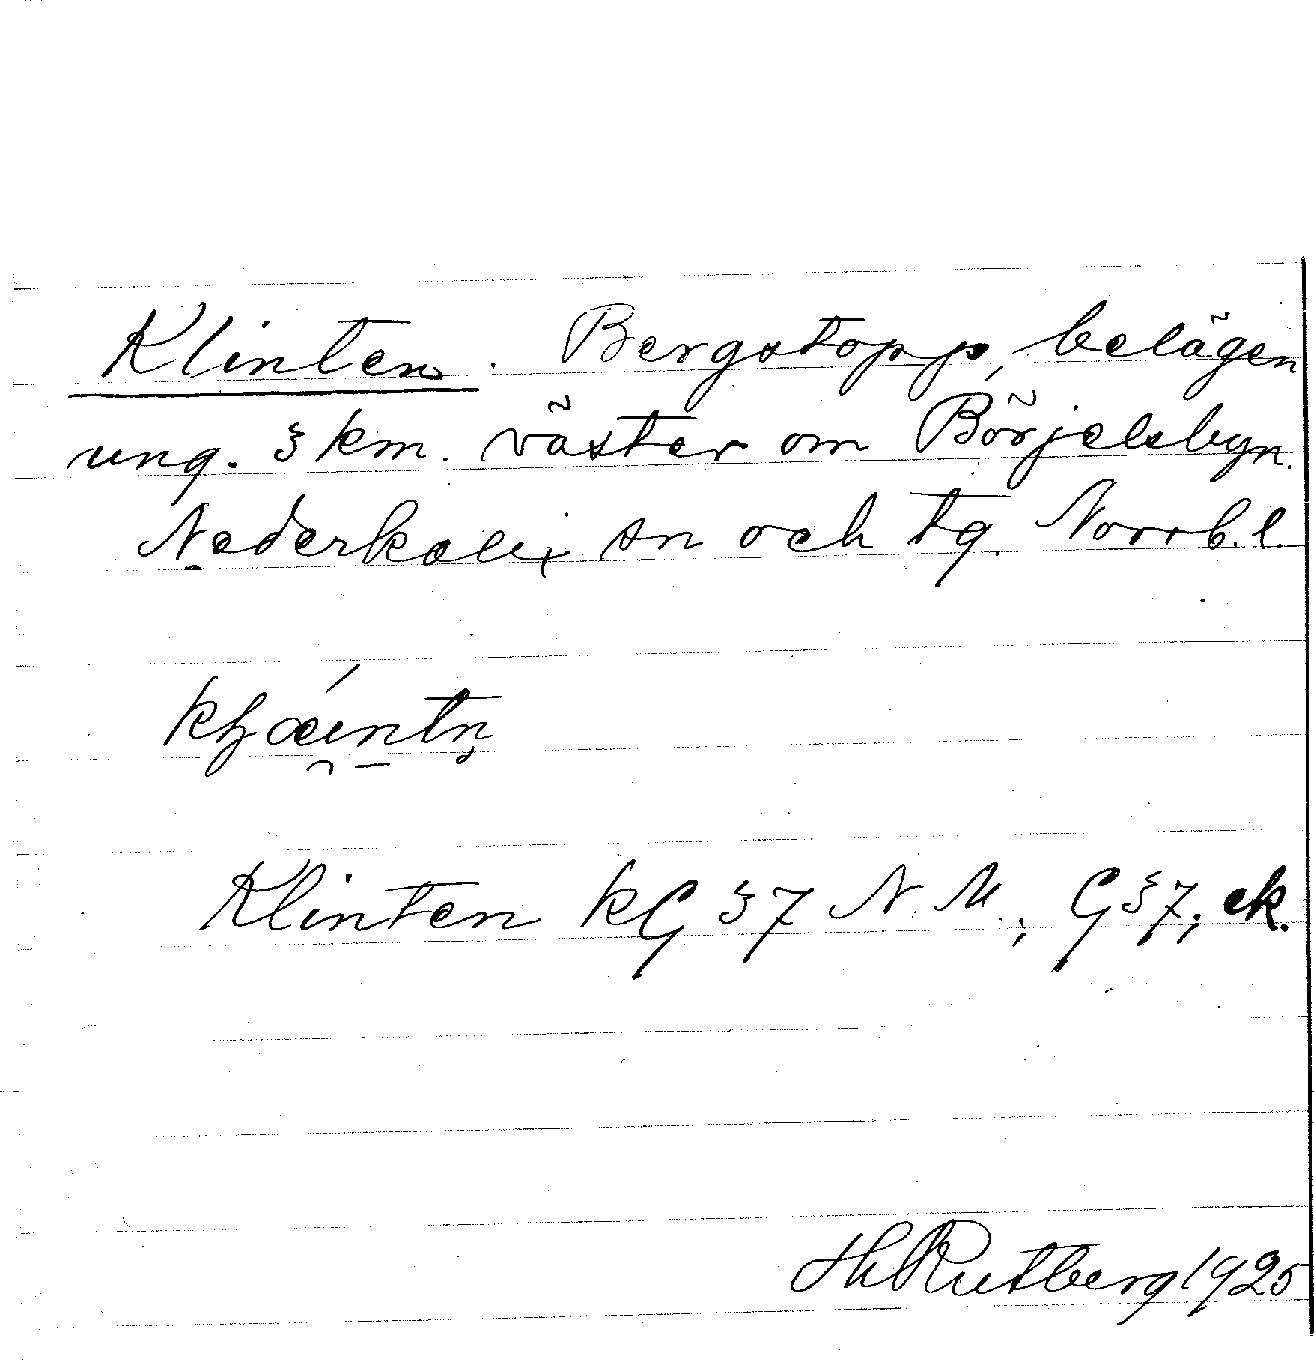 Klinten. Bergstopp, belägen
ung. 3 km. väster om Börjelsbyn.
Nederkalix sn och tg. Norrb. l.
Klinten KG 37 N. M.; G 37; ek.
Hk Rutberg 1925